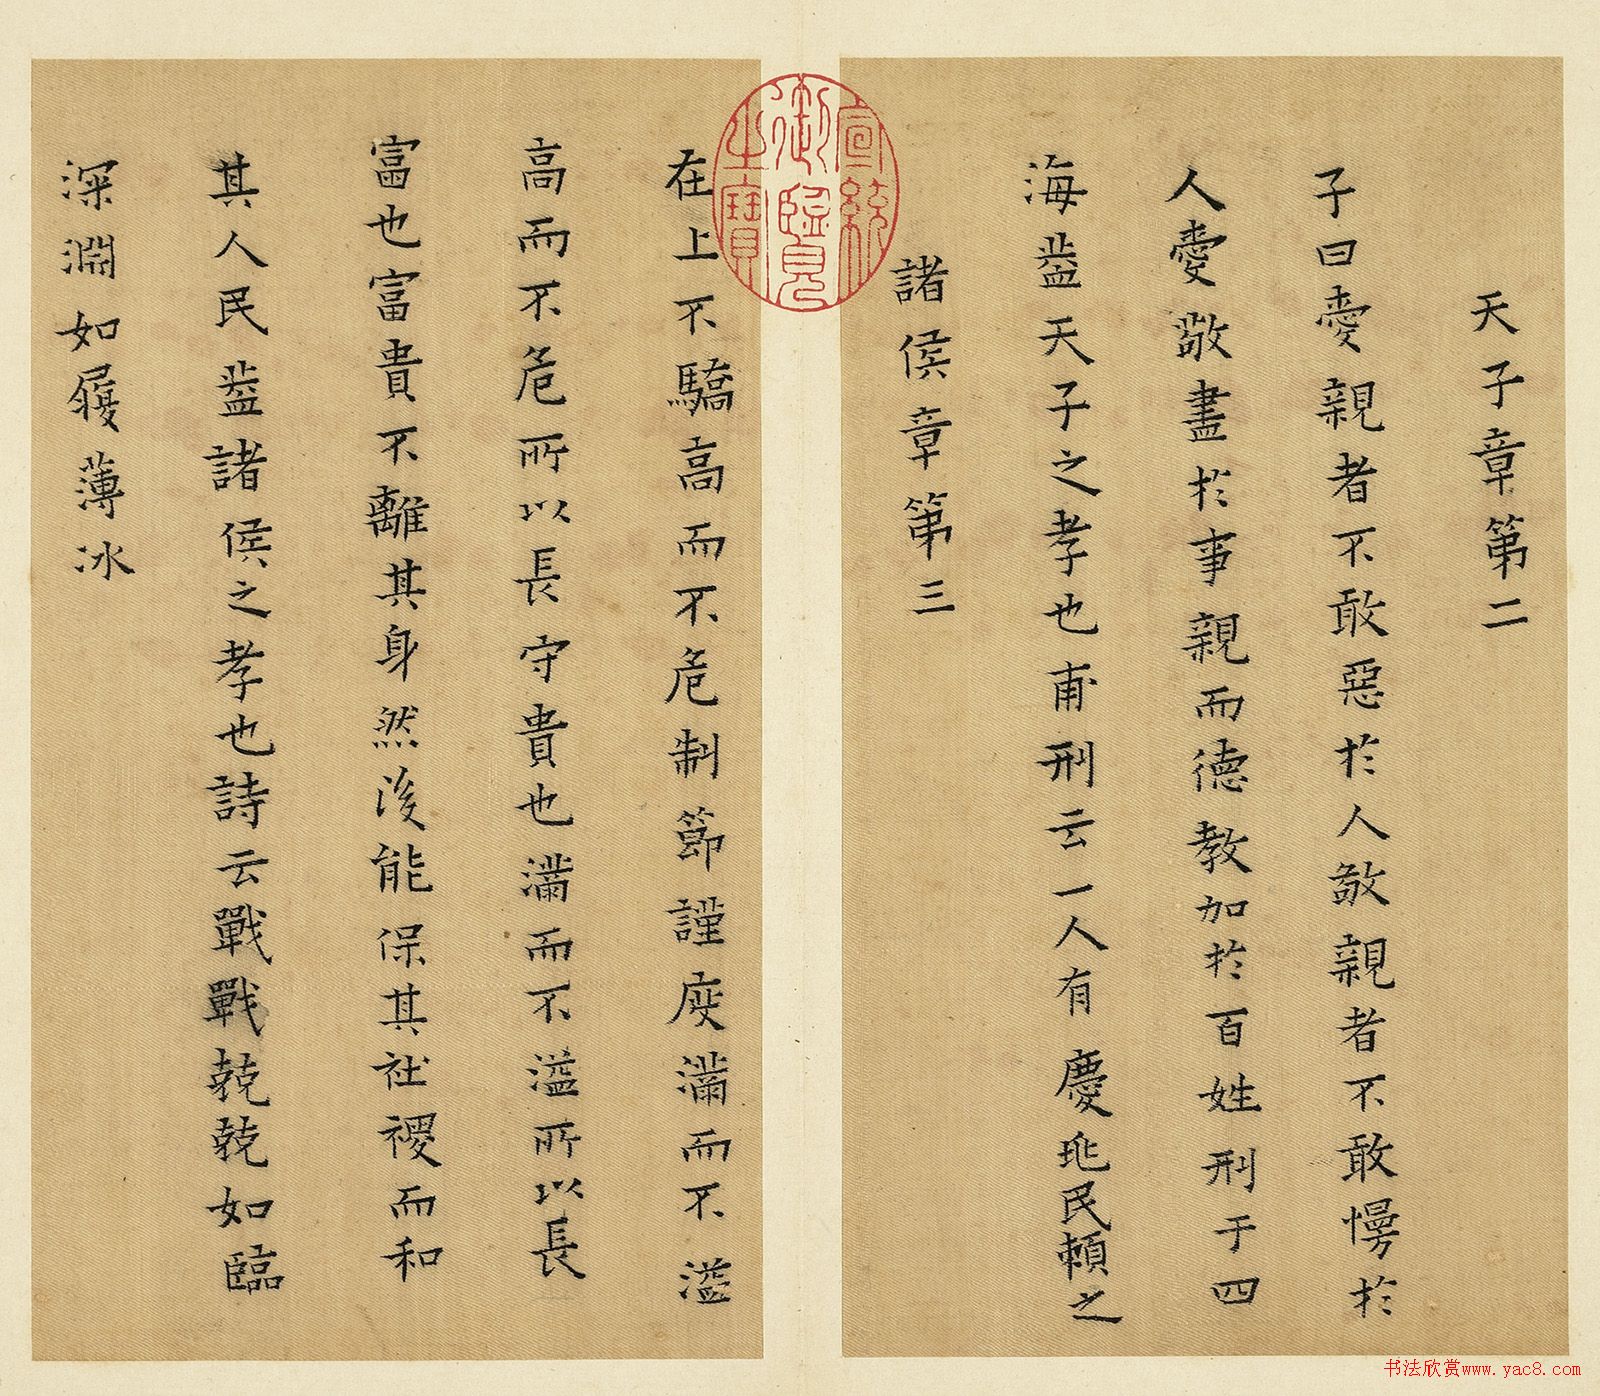 天子章第二
子曰愛親者不敢惡於人敬親者不敢慢於
人愛敬盡於事親而德教加於百姓刑于四
海葢天子之孝也甫刑云一人有慶兆民賴之
諸侯章第三
在上不驕高而不危制節謹度滿而不溢
高而不危所以長守貴也滿而不溢所以長
富也富貴不離其身然後能保其社稷而和
其人民葢諸侯之孝也詩云戰戰兢兢如臨
深淵如履薄冰
宣統
御覽
之寶
书法欣赏www.yac8.com